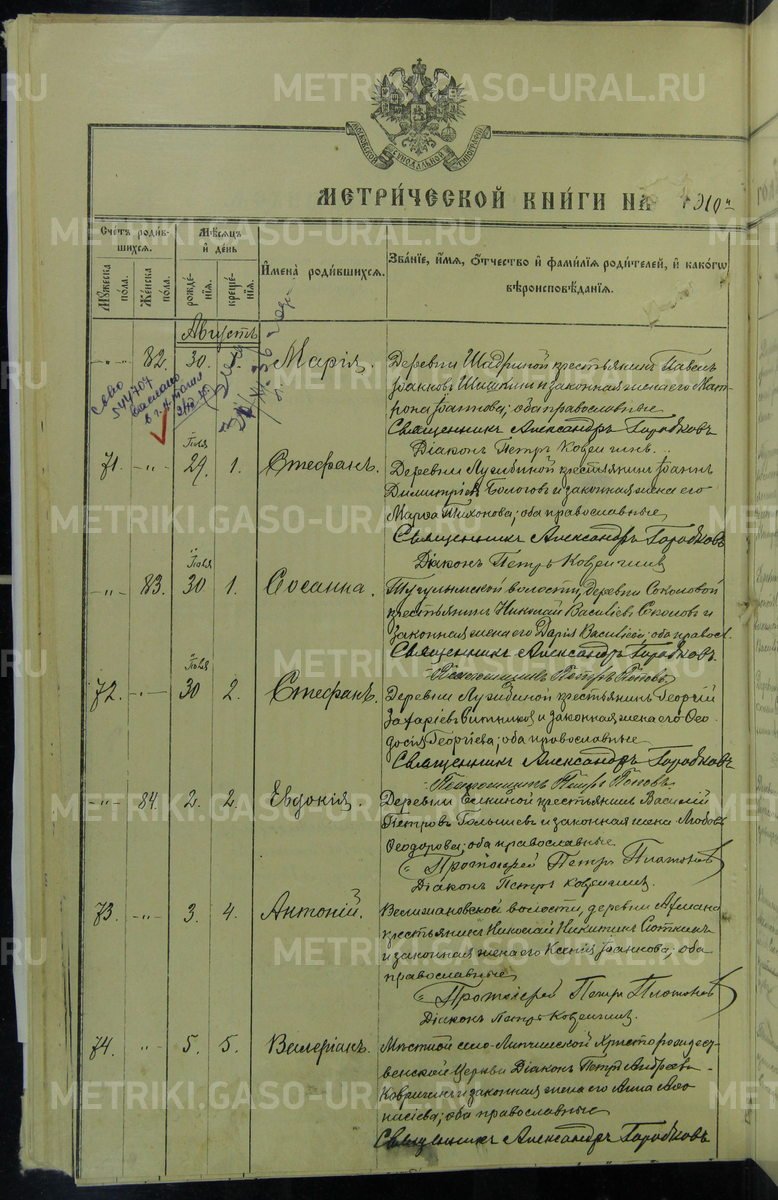 METRIKI.GASO-URAL.RU
МОСКОВСКОЙ СѴНОДАЛЬНОЙ ТИПОГРАФІИ
МЕТРИ́ЧЕСКОЙ КНИ́ГИ НА 1910 г.
Счетъ роди́вшихся.
Мꙋжеска по́ла.
Же́нска по́ла.
Мѣсяцъ и҆ де́нь
рожде́нїѧ.
креще́нїѧ.
И҆мена̀ роди́вшихсѧ.
Зва́нїе, и҆́мѧ, ѻ҆́тчество и҆ фами́лїѧ роди́телей, и҆ како́гѡ
вѣроисповѣ́данїѧ.
Августъ
82. 30 Марія.
Деревни Шадриной крестьянинъ Павелъ
Іоанновъ Шашкинъ и законная жена его Мат-
рона Іоаннова; оба православные
Священникъ Александръ Горобковъ
Діаконъ Петръ Ковригинъ.
Свво
544707
выслано
71. -"- Іюля 29. 1. Стефанъ.
Деревни Лузибиной крестьянинъ Іоаннъ
Димитріевъ Бологовъ и законная жена его
Марѳа Тихонова; оба православные
Священникъ Александръ Горобковъ
Діаконъ Петръ Ковригинъ
-"- 83. Іюля 30 1. Сосанна.
Тугулымской волости, деревни Соколовой
крестьянинъ Николай Василіевъ Соколовъ и
законная жена его Дарія Василіева; оба правосл.
Священникъ Александръ Горобковъ.
Псаломщикъ Петръ Поповъ
72. -"- Іюля 30 2. Стефанъ.
Деревни Лузибиной крестьянинъ Георгій
Захаріевъ Ситниковъ и законная жена его Ѳео-
досія Георгіева; оба православные
Священникъ Александръ Горобковъ
Псаломщикъ Петръ Поповъ
-"- 84. 2. 2. Евдокія.
Деревни Елкиной крестьянинъ Василій
Петровъ Голышевъ и законная жена Любовь
Ѳеодорова; оба православные
Протоіерей Петръ Платоновъ
Діаконъ Петръ Ковригинъ.
73. -"- 3. 4. Антоній.
Велижановской волости, деревни
крестьянинъ Николай Никитинъ Сюткинъ
и законная жена его Ксенія Іоаннова; оба
православные
Протоіерей Петръ Платоновъ
Діаконъ Петръ Ковригинъ.
74. -"- 5. 5. Валеріанъ.
Мѣстной село-Липчинской Христорождест-
венской церкви Діаконъ Петръ Андреевъ
Ковригинъ и законная жена его Анна Аѳа-
насіева; оба православные
Священникъ Александръ Горобковъ